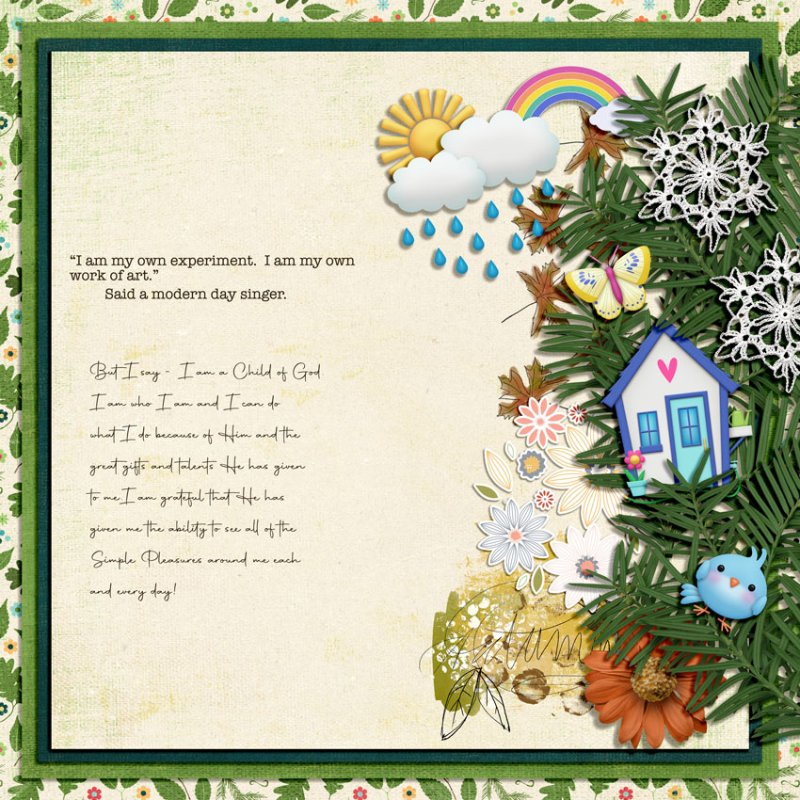 “I am my own experiment.  I am my own
work of art.”
Said a modern day singer.
But I say - I am a Child of God
I am who I am and I can do
what I do because of Him and the
great gifts and talents He has given
to me.I am grateful that He has
given me the ability to see all of the
Simple Pleasures around me each
and every day!